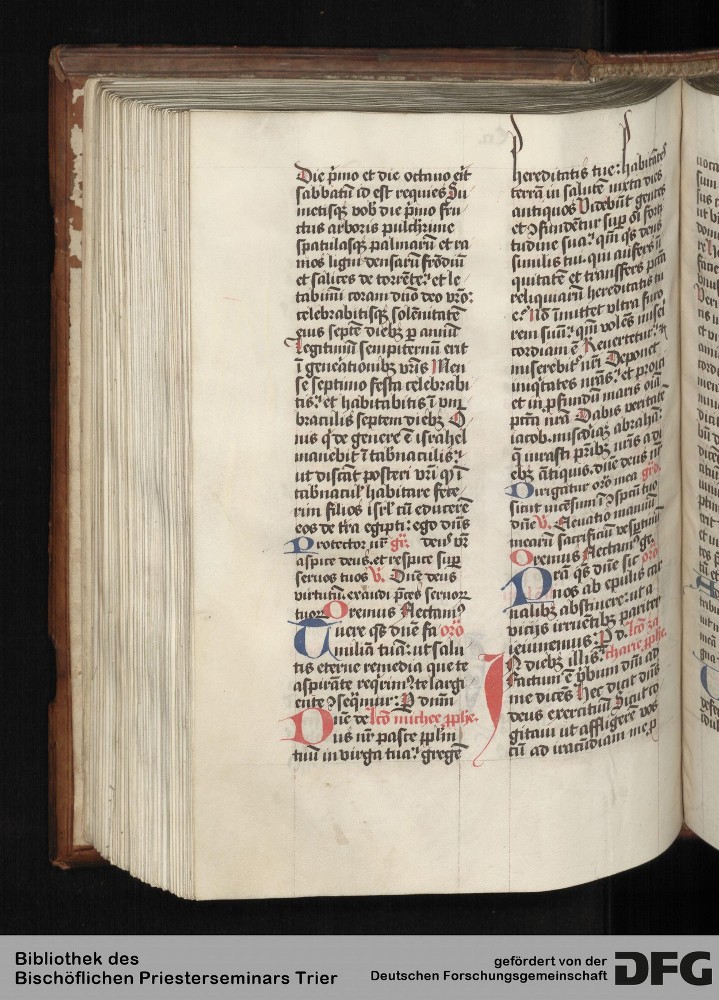 Die p̄mo et die octauo eit
sabbatū id est requies Su
metisqꝫ vob̄ die p̄mo fru
ctus arboris pulcherrime
spatulasqꝫ palmarū et ra
mos ligni densarū frōdiū
et salices de torrēte. et le
tabimi coram dn̄o deo vr̄o:
celebrabitisqꝫ solēnitatē
eius septē diebꝫ p annū
Legitimū sempiternū erit
ī gene̓ationibꝫ vr̄is Men
se septimo festa celebrabi
tis. et habitabitis ī vm̄
braculis septem diebꝫ O
nis q̓ de genere ē israhel
manebit ī tab̓naculis:
ut discāt posteri vr̄i qꝫ ī
tab̓nacul̓ habitare fece
rim filios isrl̓ cū educerē
eos de tr̄a egipti: ego dn̄s
Protector nr̄ gr̄. deus vr̄
aspice deus. et respice sup̄
seruos tuos V. Dn̄e deus
virtutū exaudi p̄ces seruoꝝ
tuoꝝ Oremus Flectam⁹
Tuere qs̄ dn̄e fa orō
miliā tuā: ut salu
tis eterne remedia que te
aspirāte req̓rim⁹. te largi
ente ꝯseq̄mur: P dnm̄
Dn̄e de lcō michee ꝓph̄e.
us nr̄ pasce ppl̄m
tuū in virga tua. gregē
hereditatis tue: habitātes
terrā in salute iuxta dies
antiquos Videbūt gentes
et ꝯfundētur sup̄ oī forti
tudine sua. qm̄ qs̄ deus
similis tui. qui aufers ī
quitatē et transfers pctā
reliquiarū hereditatis tu
e. Nō īmittet vltra furo
rem suū. qm̄ volēs misei
cordiam ē Reuertetur. &
miserebit̓ nr̄i Deponet
iniq̓tates nr̄as. et proici
et in p̓fundū maris oīa
pctā nr̄a Dabis veritatē
iacob. miscdiaꝫ abrahā:
q̄ iurasti pr̄ibꝫ nr̄is a di
ebꝫ ātiquis. dn̄e deus nr̄
Dirigatur orō mea gr̄d.
sicut incēsum ī ꝯspctū tuo
dn̄e V. Eleuatio manuū
mearū sacrificiū vesp̄tinū
Oremus Flectam⁹ ge.
Pr̄a qs̄ dn̄e sic orō
nos ab epulis car
nalibꝫ abstinere: ut a
vicijs irruētibꝫ pariter
ieiunemus: P d. lcō za
In diebꝫ illis. charie ꝓph̄e.
Factum ē v̓bum dn̄i ad
me dicēs Hec dicit dn̄s
deus exercituū Sicut co
gitaui ut affligerē vos
cū ad iracūdiam me p
Bibliothek des
Bischöflichen Priesterseminars Trier
gefördert von der
Deutschen Forschungsgemeinschaft
DFG